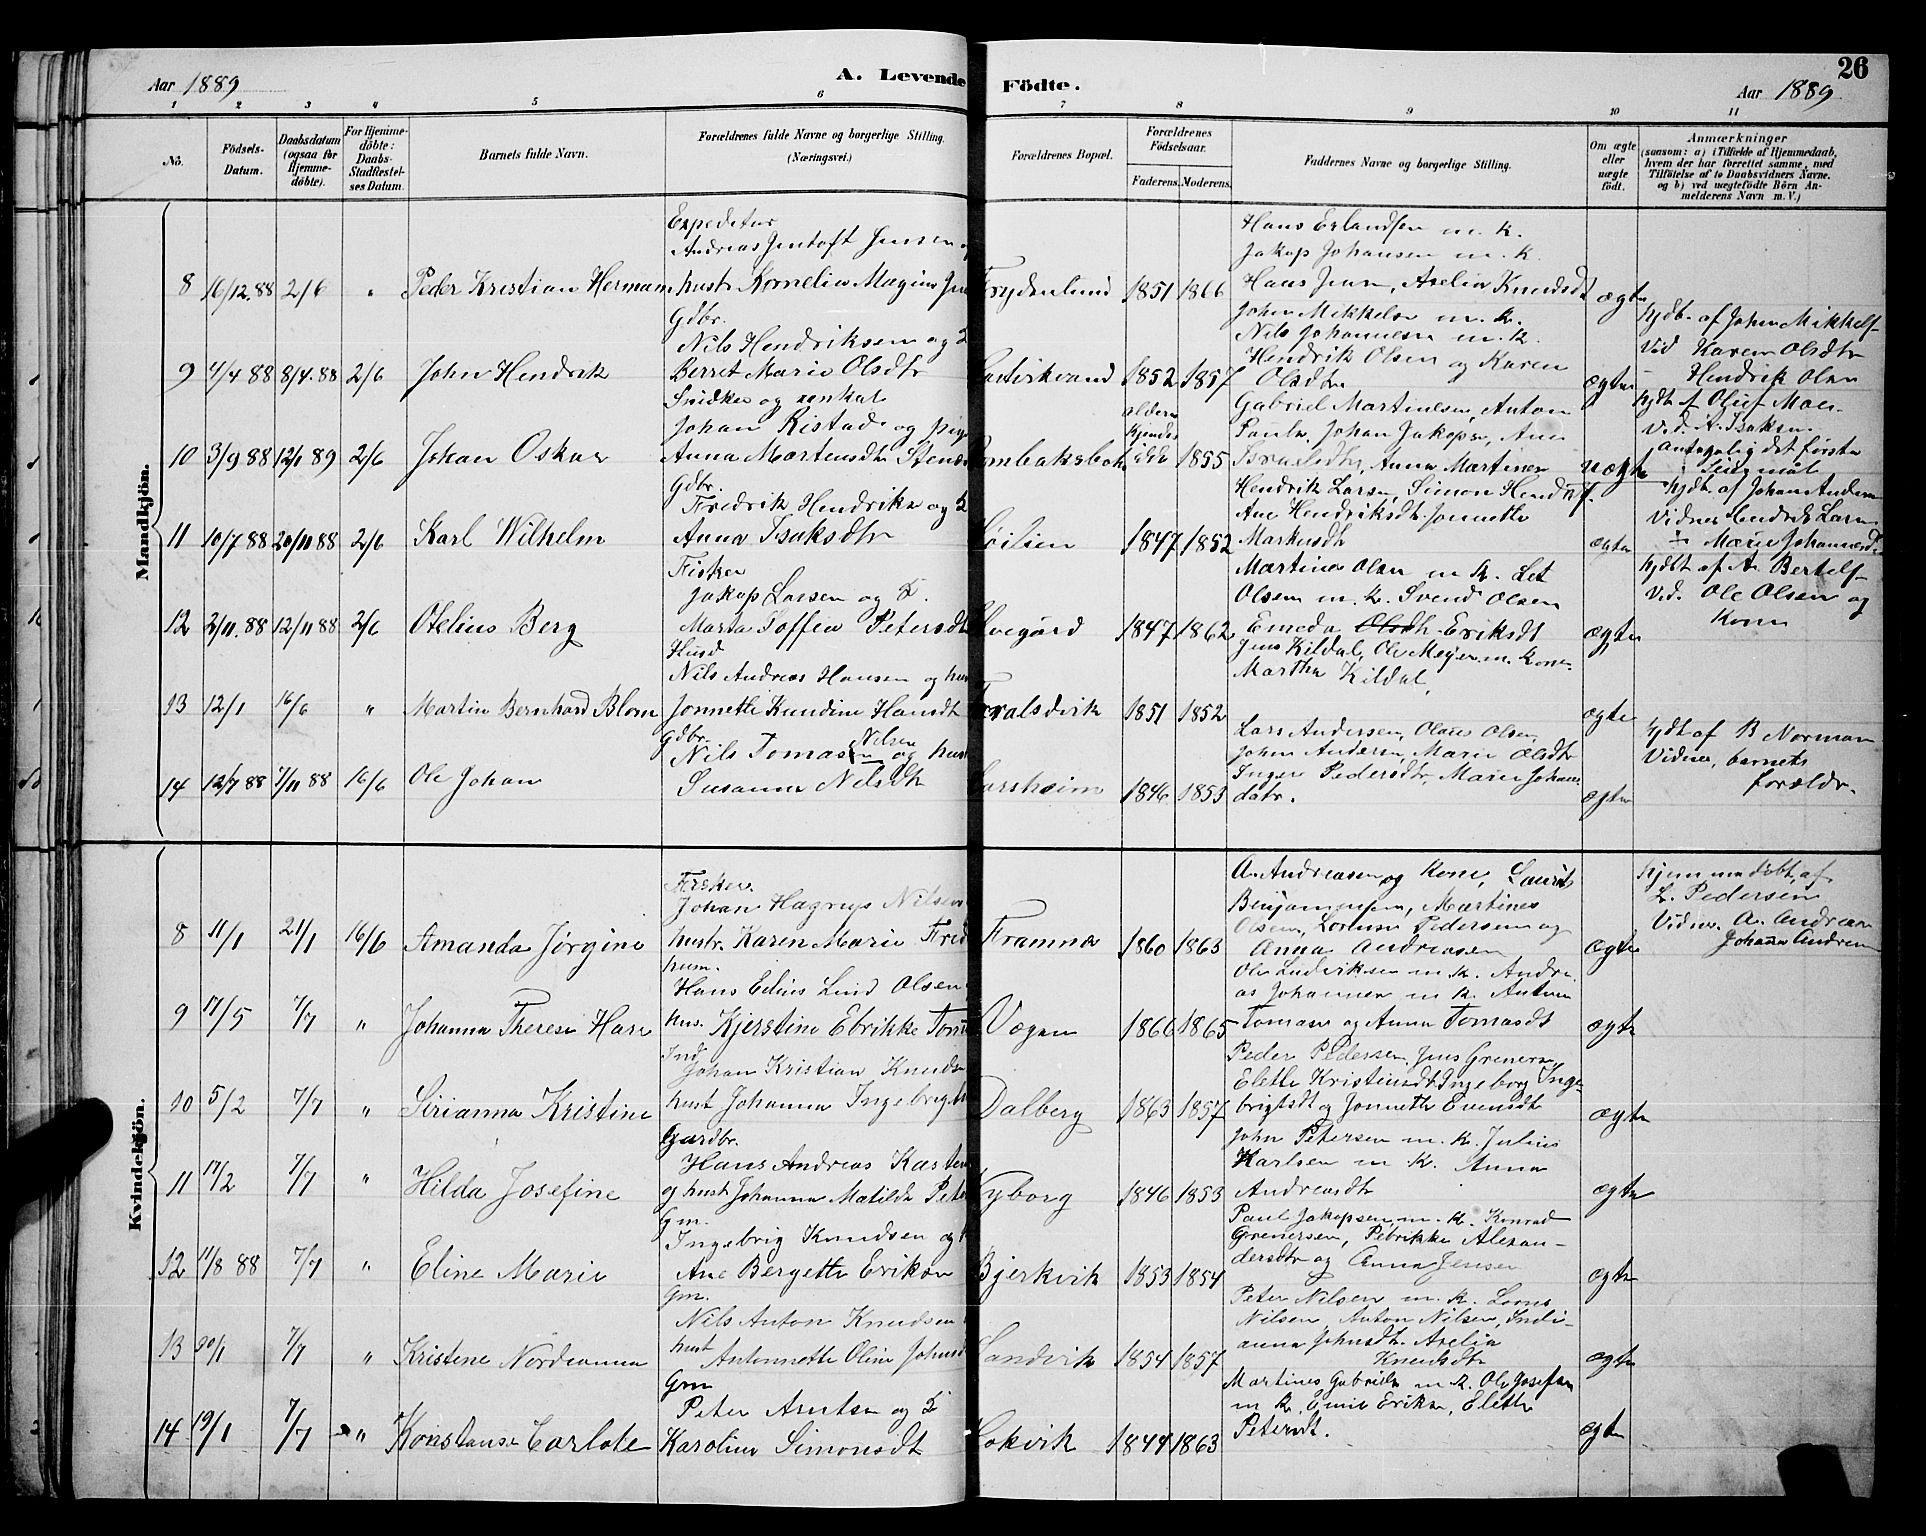 26
Aar 1889
A. Levende Födte.
Aar 1889
1 2 3 4 5 6 7 8 9 10 11
No.
Födsels-Datum.
Daabsdatum (ogsaa for Hjemme-döbte).
For Hjemme-döbte: Daabs-Stadfæstel-ses Datum.
Barnets fulde Navn.
Forældrenes fulde Navne og borgerlige Stilling. (Næringsvei.)
Forældrenes Bopæl.
Forældrenes Födselsaar.
Faderens. Moderens.
Faddernes Navne og borgerlige Stilling.
Om ægte eller uægte födt.
Anmærkninger
(saasom: a) i Tilfælde af Hjemmedaab,
hvem der har forrettet samme, med
Tilföielse af to Daabsvidners Navne.
og b) ved uægtefödte Börn An-
melderens Navn m. V.)
Mandkjön.
Expeditör
Andreas Jentoft Jensen
Hans Erlandsen m. K.
Jakop Johansen m. K.
8 16/12.88 2/6 " Peder Kristian Herman hustr Kornelia 1851 1866 Hans Jensen, Axelia Knudsdt ægte
Gdbr.
Nils Hendriksen og
John Mikkelsen m. K.
Nils Johannesen m. K.
hjdb. af John Mikkels
9 4/4 88 8/4.88 2/6 John Hendrik Berret Marie Olsdtr 1852 1857 Hendrik Olsen og Karen
Olsdtr ægte
Vid Karen Olsdtr
Hendrik Olsen
Snedker og
Johan Ristad og pige
alderen kjendes ikke
Gabriel Martinusen, Anton
hjdt af Oluf Moe
Vid. A. Isaksen
10 3/9 88 12/1 89 2/6 Johan Oskar Anna Martensdtr 1855 Anna Martinsen uægte
antagelig det første
Gdbr.
Fredrik Hendriksen og
Hendrik Larsen, Simon
Ane Hendriksdt. Jonnette
hjdt. af Johan Andersen
11 10/7 88 20/11 88 2/6 Karl Wilhelm Anna Isaksdtr 1847 1852 Markusdt ægte
Vidner Hendrik Larsen
Marie
Fisker
Jakop Larsen og
Martines Olsen m. K.
Olsen m. K. Svend Olsen
hjdt af A. Bertels
Vid. Ole Olsen og
Kone
12 2/11.88 12/11 88 2/6 Otelius Berg Marta Soffia Petersdt 1847 1862 Emeda Eriksdt ægte
Husd
Nils Andreas Hansen og hus
Jens Kildal, Ole Meyer m. Kone
Martha Kildal,
13 12/1 16/6 " Martin Bernhard Blom Jonnette Kundine Hansdt 1851 1852 ægte
Gdbr.
Nils Tomas Nilsen og hust
Lars Andersen, Olaus Olsen,
John Andersen Marie Olsdtr
hjdt af B Norman
Vidner, barnets
forældr.
14 12/7 88 7/11 88 16/6 Ole Johan Susanna Nilsdtr 1846 1853 Inger Pedersdtr, Marie Johans
datr. ægte
Kvindekjön.
Fisker.
Johan Hagrup Nilsen
A. Andreasen og Kone, Laurits
Benjaminsen, Martines
Hjemmedöbt, af
L. Pedersen
8 11/1 21/1 16/6 Amanda Jörgine hustr. Karen Marie Fred Framnæs 1860 1863 Olsen, Lorents Pedersen og
Anna Andreasen ægte
Vidner. A. Andreasen
Johan Andreasen
hum.
Hans Edius Lind Olsen
Ole Ludviksen m. K. Andre
as Johannesen m K. Anton
9 17/5 7/7 " Johanna Therese Hare hus. Kjerstine Ebrikke Tom Vøgen 1866 1865 Tomasen og Anna Tomasdt ægte
Ind
Johan Kristian Knudsen
Peder Pedersen, Jens Grenersen
Elette Kristiansdt Ingeborg Inge
10 5/2 7/7 " Sirianna Kristine hust Johanna Ingebrigt Dalberg 1863 1857 brigtsdt og Jonnette Evensdtr ægte
Gaardbr.
Hans Andreas Karsten
John Petersen m. K. Julius
Karlsen m K. Anna
11 17/2 7/7 " Hilda Josefine og hust Johanna Matilde Peter Nyborg 1846 1853 Andreasdtr ægte
Gm.
Ingebrig Knudsen og
Paul Jakopsen m. K. Konrad
Grenersen, Pebrikke Alexan-
12 11/8 88 7/7 " Eline Marie Ane Bergette Eriksen Bjerkvik 1853 1854 dersdtr og Anna Jensen ægte
Gm.
Nils Anton Knudsen
Peter Nilsen m. K.
Nilsen, Anton Nilsen, Indi-
13 20/1 7/7 " Kristene Nordianna hust Antonnette Oline Johnsd Sandvik 1854 1857 anna Johnsdt. Axelia
Knudsdtr ægte
Gm
Peter Arntsen og
Martines Gabrielsen m K. Ole Josefsen
m K, Emil Eriksen, Elette
14 19/1 7/7 " Konstanse Carlote Karoline Simonsdt 1844 1863 Petersdt. ægte